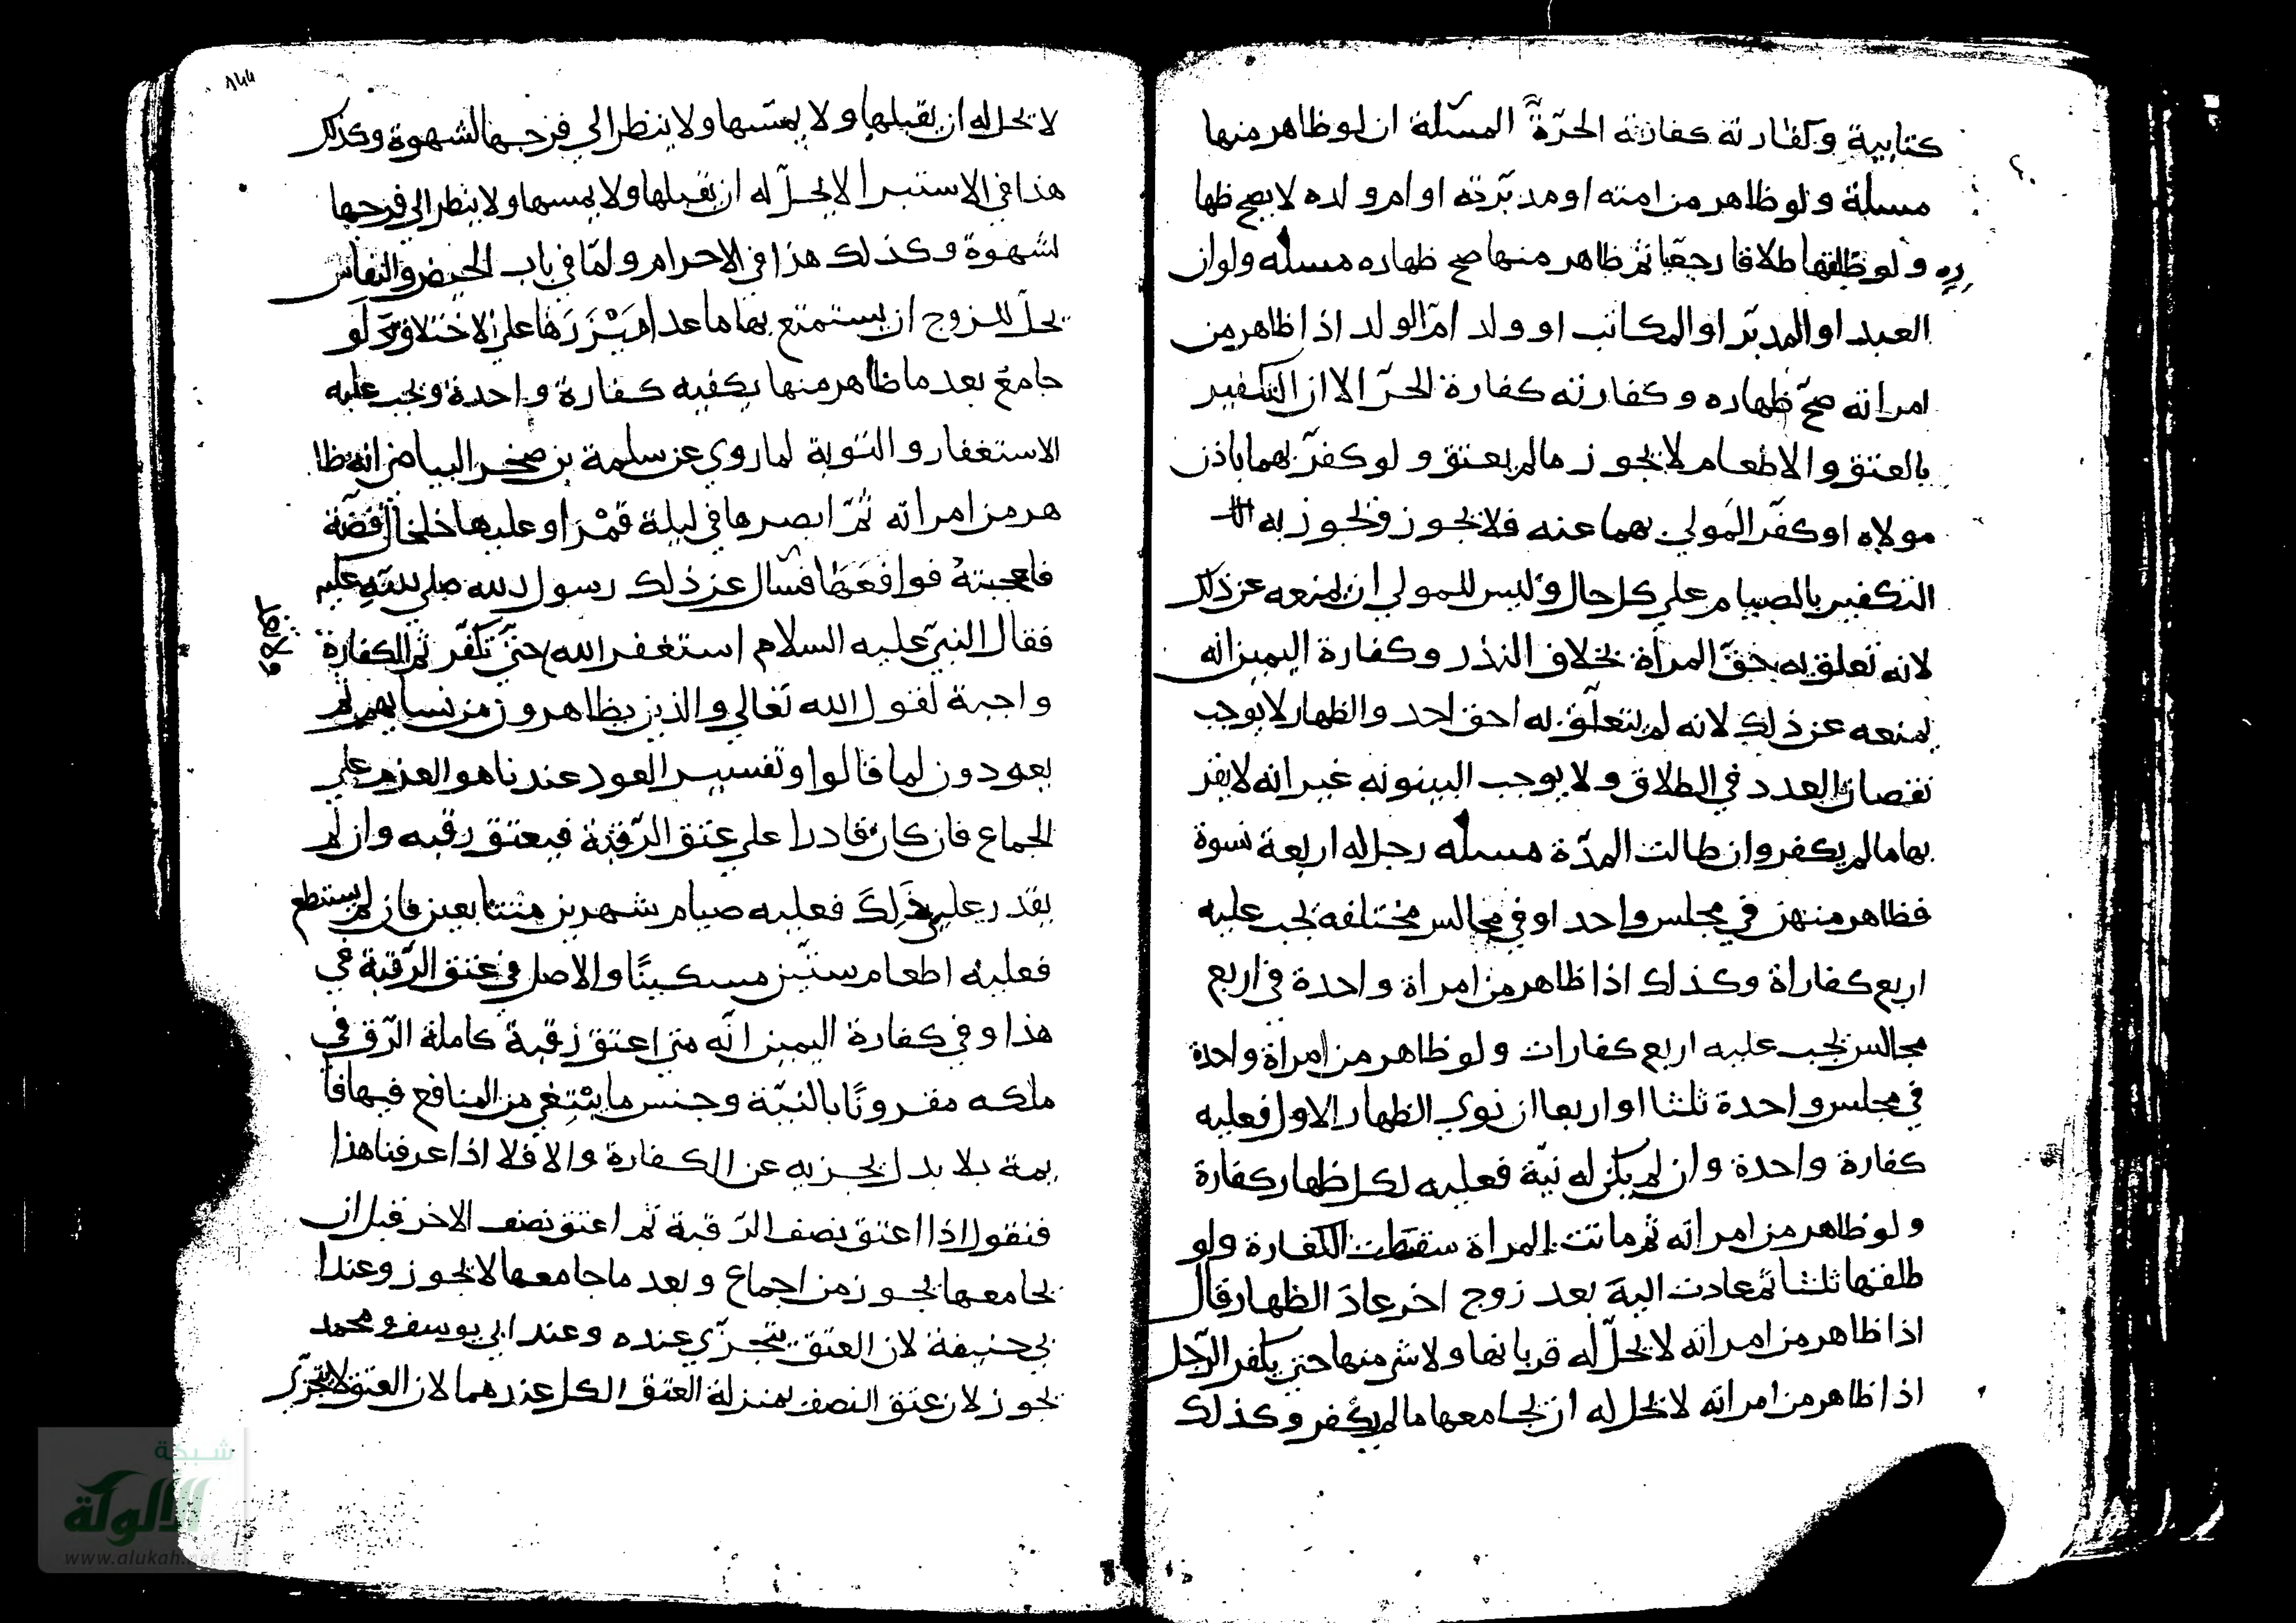 كتابية وكفارته كفارته الحرّة المسئلة ان لو ظاهر منها
مسلة ولو ظاهر من امته او مدبّرته او ام ولده لا يصح ظها
ره ولو طلقها طلاقا رجعيا ثم ظاهر منها صح ظهاره مسله ولو ان
العبد او المدبّر او المكاتب او ولد امّ الولد اذا ظاهر من
امراته صحّ ظهاره وكفارته كفارة الحرّ الا ان التكفير
بالعتق والاطعام لا يجوز ما لم يعتق ولو كفرّ بهما باذن
مولاه او كفّر المولي بهما عنه فلا يجوز ويجوز به
التكفير بالصيام علي كل حال وليس للمولي ان يمنعه عن ذلك
لانه تعلق به حقّ المرأة بخلاف النذر وكفارة اليمين انه
يمنعه عن ذلك لانه لم يتعلّق به احق احد والظهار لا يوجب
نقصان العدد في الطلاق ولا يوجب البينونه غير انه لا يقر
بها ما لم يكفر وان طالت المدّة مسله رجل له اربعة نسوة
فظاهر منهن في مجلس واحد او في مجالس مختلفه يجب عليه
اربع كفاراة وكذلك اذا ظاهر من امراة واحدة في اربع
مجالس يجب عليه اربع كفارات ولو ظاهر من امراة واحدة
في مجلس واحدة ثلثا او اربعا ان نوي الظهار الاول فعليه
كفارة واحدة وان لم يكن له نيّة فعليه لكل ظهار كفارة
ولو ظاهر من امراته ثم ماتت المراة سقطت الكفارة ولو
طلقها ثلثا ثم عادت الية بعد زوج اخر عاد الظهار قال
اذا ظاهر من امراته لا يحلّ له قربانها ولا شي منها حتي يكفر الرّجل
اذا ظاهر من امراته لا يحل له ان يجامعها ما لم يكفر وكذلك
١٤٤
لا يحل له ان يقبلها ولا يمسّها ولا ينظر الي فرجها لشهوة وكذلك
هذا في الاستبرا لا يحلّ له ان يقبلها ولا يمسها ولا ينظر الي فرجها
لشهوة وكذلك هذا في الاحرام ولمّا في باب الحيض والنفاس
يحلّ للزوج ان يستمتع بها ما عدا ميْزَرَها علي الاختلاف ولو
جامع بعد ما ظاهر منها يكفيه كفارة واحدة ويجب عليه
الاستغفار والتوبة لما روي عن سلمة بن صخر البياض انه ظا
هر من امراته ثمّ ابصرها في ليلة قمْرا وعليها خلخال فضّة
فاعجبتهُ فواقعَها فسال عن ذلك رسول الله صلي الله عليه
فقال النبيّ عليه السلام استغفر الله حتيّ تكفّر ثم الكفارة
واجبة لقول الله تعالي والذين يظاهرون من نسايهم ثم
يعودون لما قالوا وتفسير العود عندنا هو العزم علي
الجماع فان كان قادرا علي عتق الرّقبة فيعتق رقبه وان لم
يقدر علي ذَلِكَ فعليه صيام شهرين متتابعين فان لم يستطع
فعليه اطعام ستيّن مسكينًا والاصل في عتق الرّقبة في
هذا وفي كفارة اليمين انّه متي اعتق رقبة كاملة الرّق في
ملكه مقرونًا بالنيّة وجنس ما يبْتغي من المنافع فيها قا
يمة بلا بدل يجزيه عن الكفارة والا فلا اذا عرفنا هذا
فنقول اذا اعتق نصف الرّقبة ثم اعتق نصف الاخر قبل ان
يجامعها يجوز من اجماع وبعد ما جامعها لا يجوز وعند ا
بي حنيفة لان العتق يتجزّي عنده وعند ابي يوسف ومحمد
يجوز لان عتق النصف بمنزلة العتق الكل عندهما لان العتق لا يتجزّي
شبكة
الألوكة
www.alukah.net